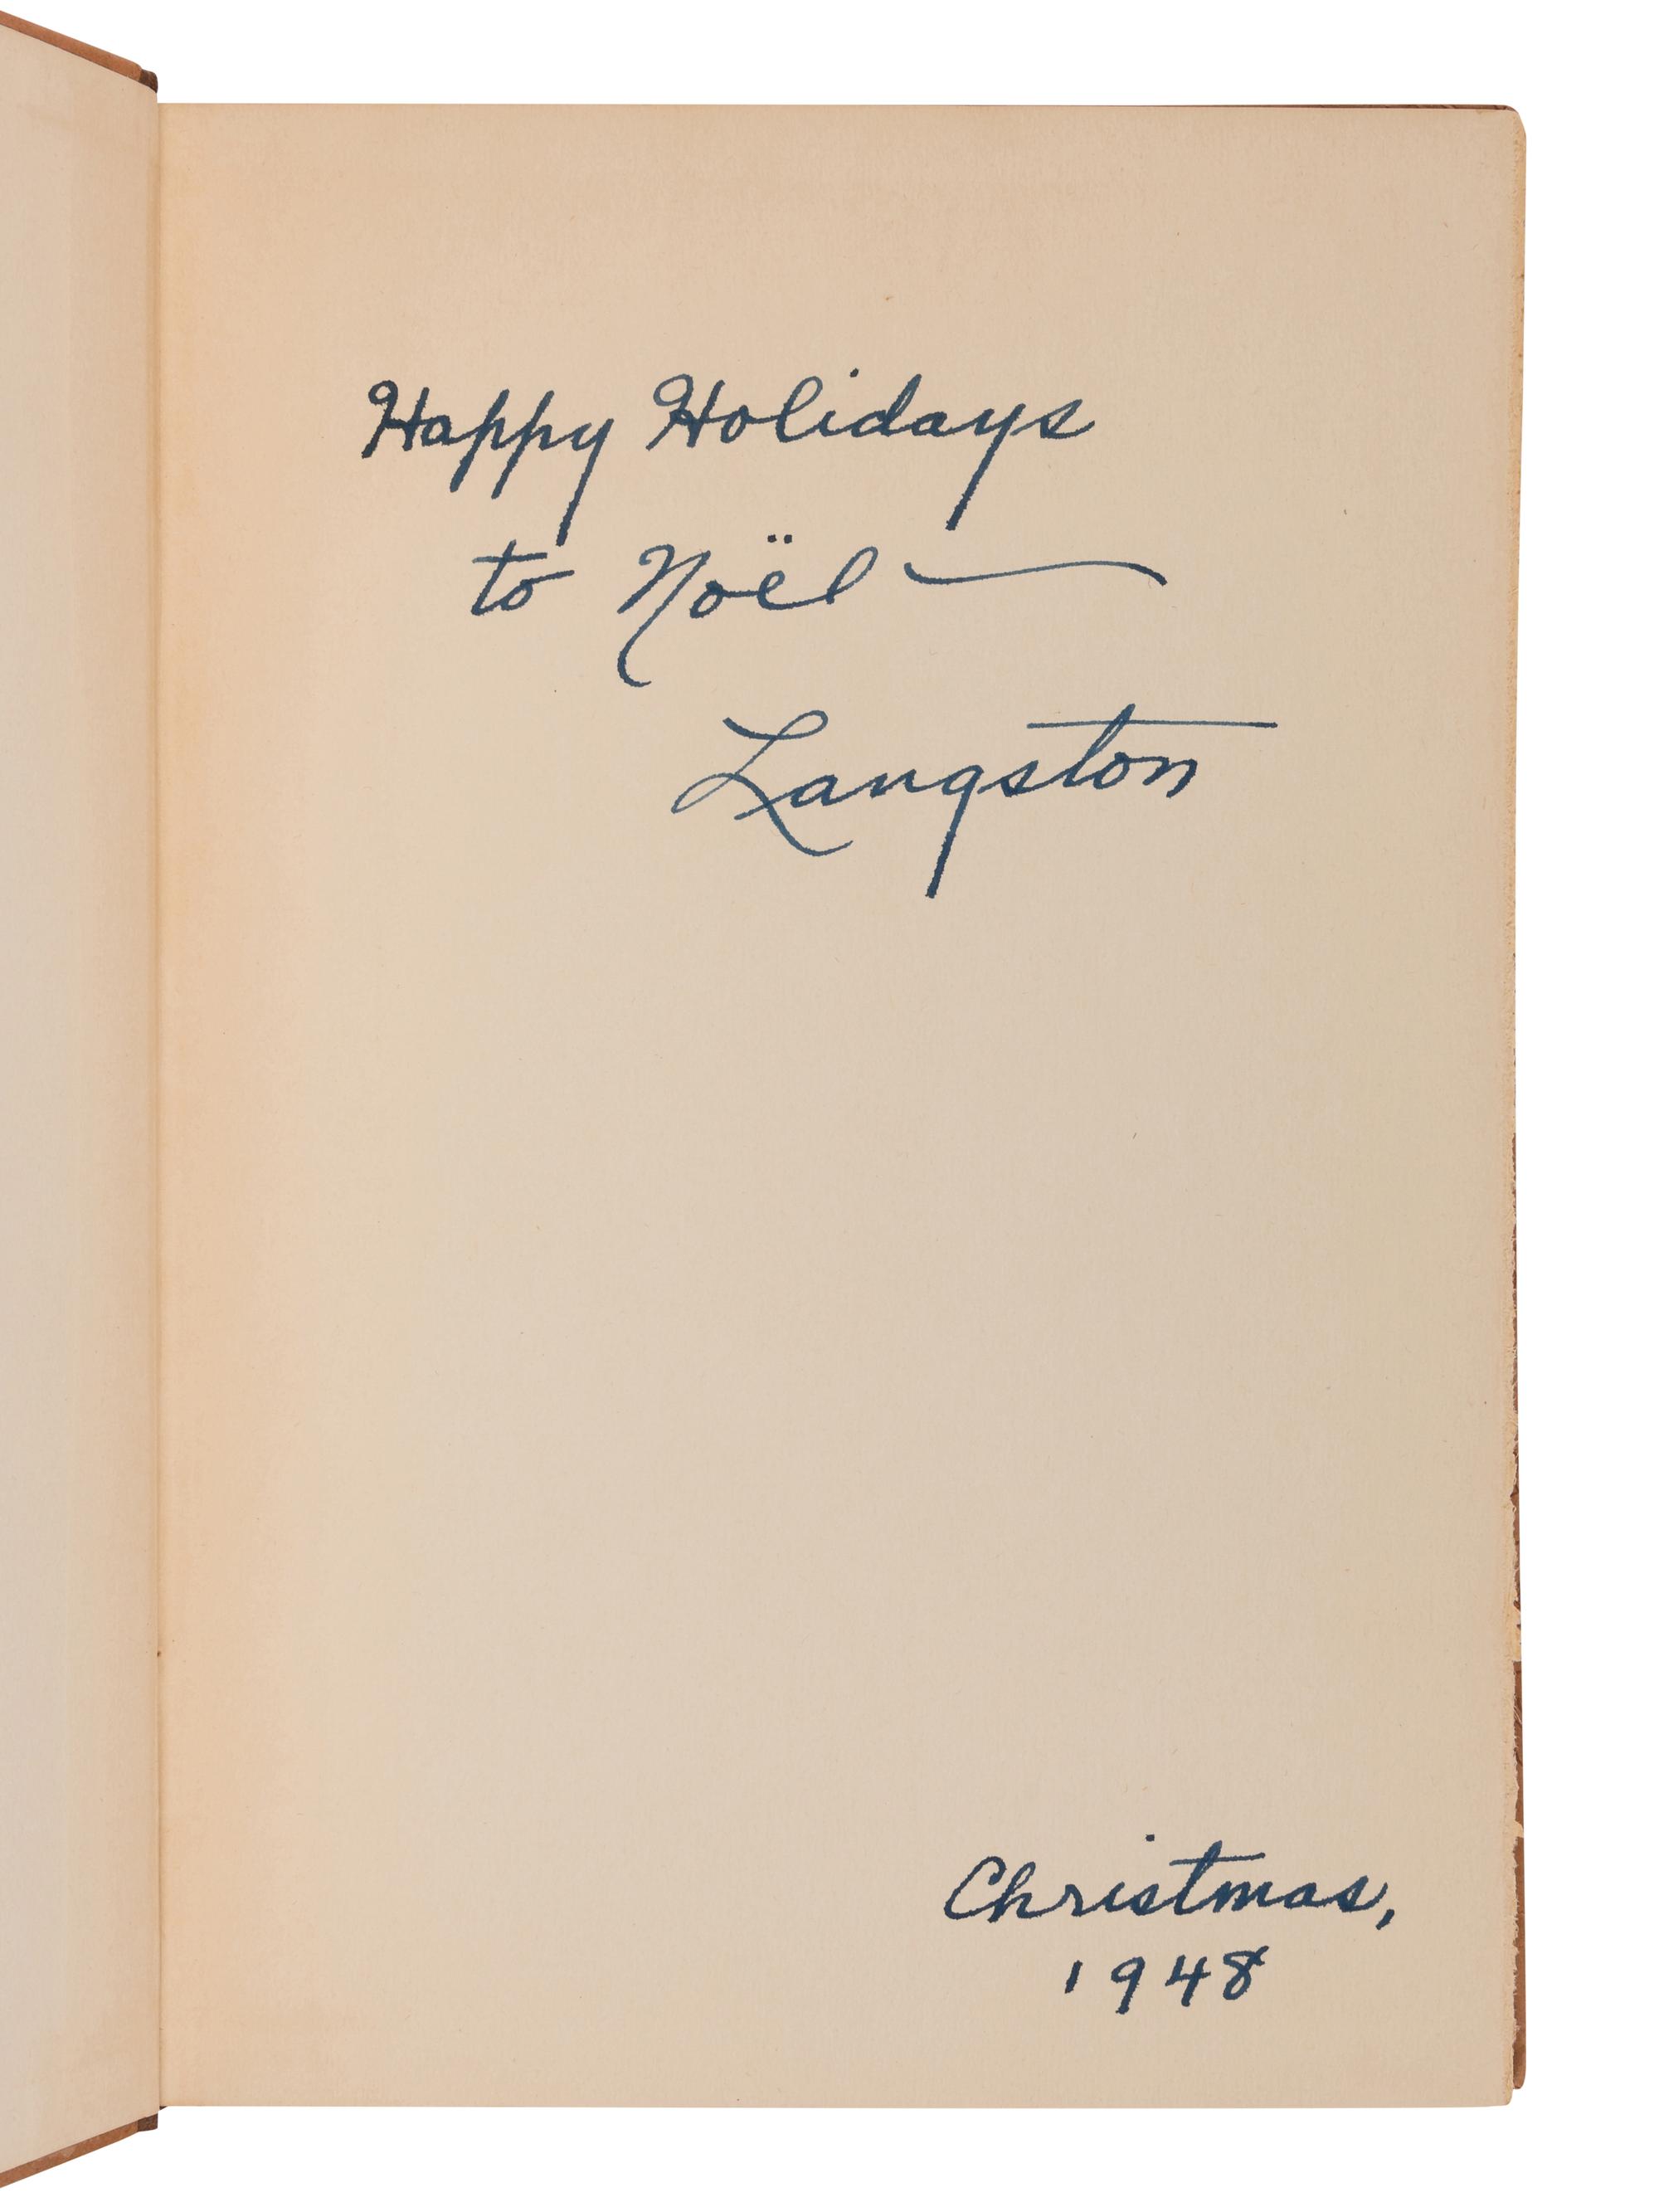 Happy Holidays
to Noël —
Langston
Christmas,
1948